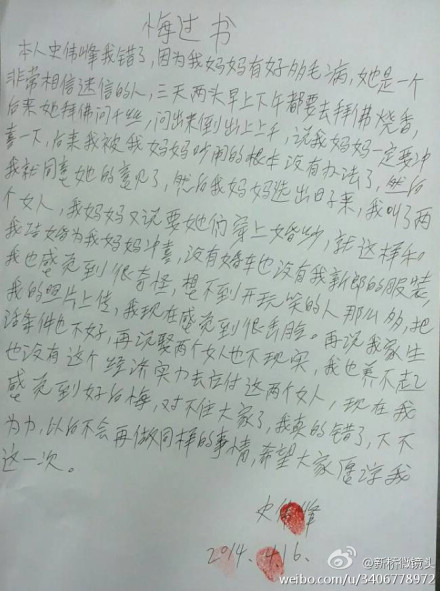 悔过书
本人史伟峰我错了,因为我妈妈有好多毛病,她是一个
非常相信迷信的人,三天两头早上下午都要去拜佛烧香,
后来她拜佛问千丝,问出来倒出上上千,说我妈妈一定要冲
喜一下,后来我被我妈妈吵闹的根本没有办法了,然后
我就同意她的意见了,然后我妈妈选出日子来,我叫了两
个女人,我妈妈又说要她们穿上女婚纱,就这样和
我结婚为我妈妈冲喜,没有婚车也没有我新郎的服装,
我也感觉到很奇怪,想不到开玩笑的人那么多,把
我的照片上传,我现在感觉到很丢脸。再说我家生
活条件也不好,再说娶两个女人也不现实,我也养不起
也没有这个经济实力去应付这两个女人,现在我
感觉到好后悔,对不住大家了,我真的错了,下不
为力,以后不会再做同样的事情,希望大家原谅我
这一次。
史伟峰
2014. 4 16.
@新桥微镜头
weibo.com/u/3406778972